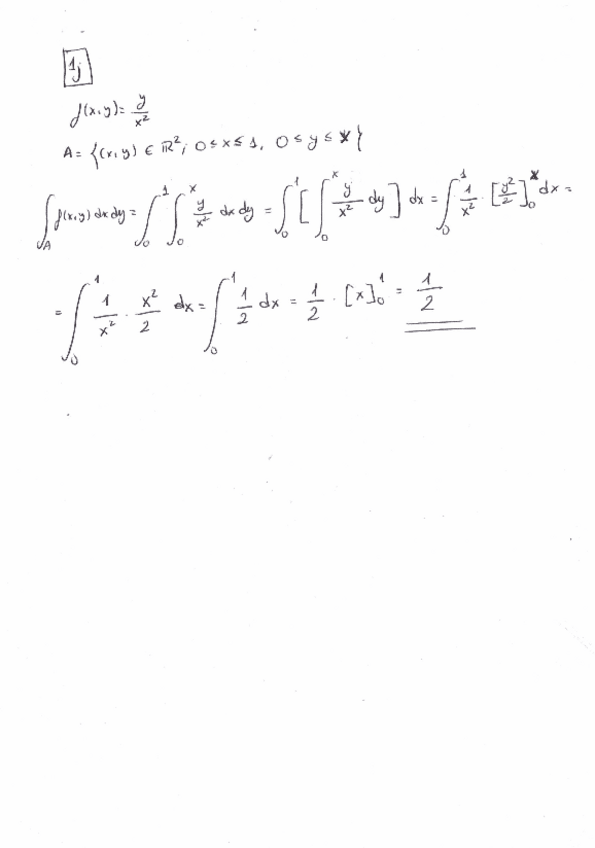 1j
f(x,y) = y/x²
A = {(x,y) ∈ ℝ², 0 ≤ x ≤ 1, 0 ≤ y ≤ x}
∫_A f(x,y) dx dy = ∫_0^1 ∫_0^x y/x² dx dy = ∫_0^1 [ ∫_0^x y/x² dy ] dx = ∫_0^1 1/x² · [y²/2]_0^x dx =
= ∫_0^1 1/x² · x²/2 dx = ∫_0^1 1/2 dx = 1/2 · [x]_0^1 = 1/2